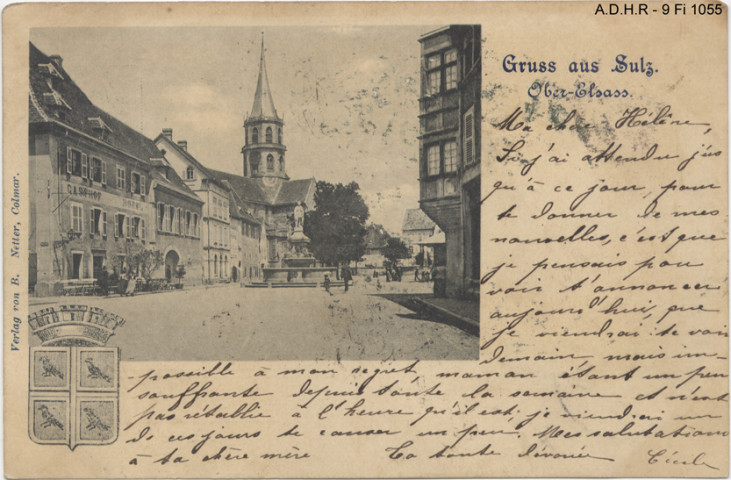 A.D.H.R - 9 Fi 1055
Gruss aus Sulz.
Ober-Elsass.
Verlag von B. Netter, Colmar.
GASTHOF
Ma chère Hélène,
Si j'ai attendu jus
qu'à ce jour, pour
te donner de mes
nouvelles, c'est que
je pensais pou
voir t'annoncer
aujourd'hui, que
je viendrai te voir
demain, mais im-
possible à mon regret, maman étant un peu
souffrante depuis toute la semaine et n'est
pas rétablie à l'heure qu'il est, je viendrai un
de ces jours te causer un peu. Mes salutations
à ta chère mère Ta toute dévouée
Cécile